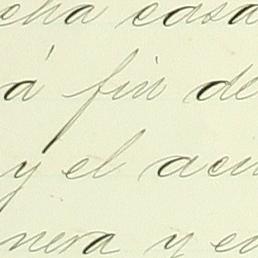 cha casa
á fin de
y el acu
nera y en